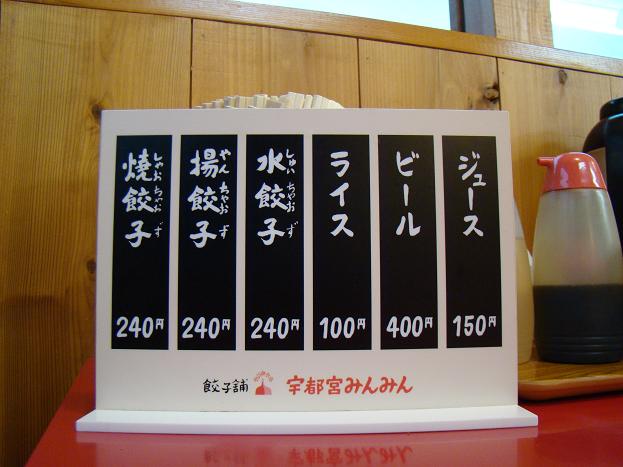 焼餃子
しゃおちゃおず
240円
揚餃子
やんちゃおず
240円
水餃子
しゅいちゃおず
240円
ライス
100円
ビール
400円
ジュース
150円
餃子舗 宇都宮みんみん